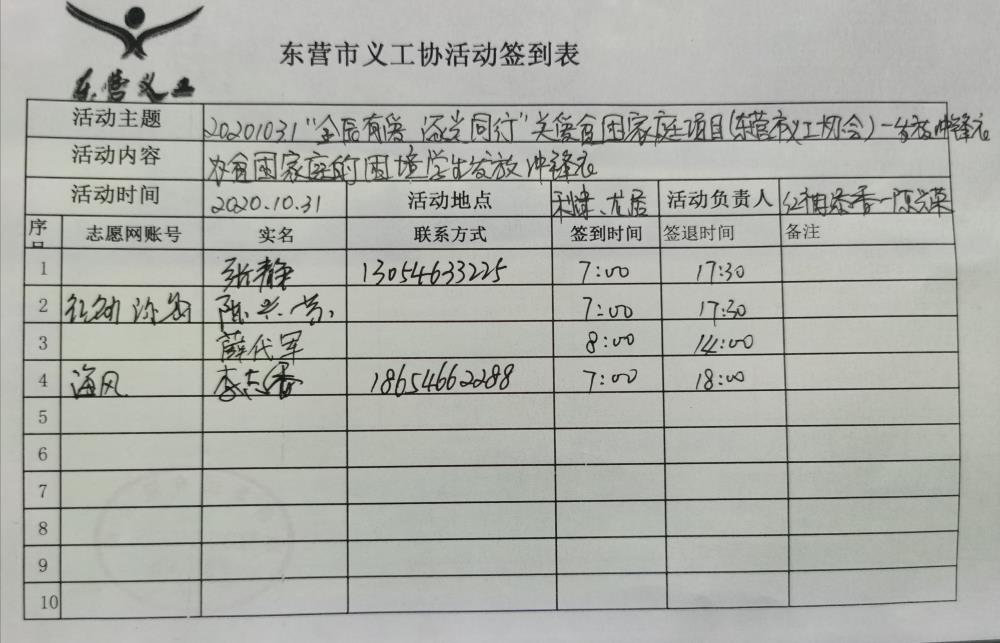 东营义工
东营市义工协活动签到表
活动主题 20201031"全民有爱 逐光同行"关爱贫困家庭项目(东营市义工协会)一发放冲锋衣
活动内容 为贫困家庭的困境学生发放冲锋衣
活动时间 2020.10.31 活动地点 利津、龙居 活动负责人 红梅
序号 志愿网账号 实名 联系方式 签到时间 签退时间 备注
1 张静 13054633225 7:00 17:30
2 陈 7:00 17:30
3 薛代军 8:00 14:00
4 海风 李志香 18654662288 7:00 18:00
5
6
7
8
9
10